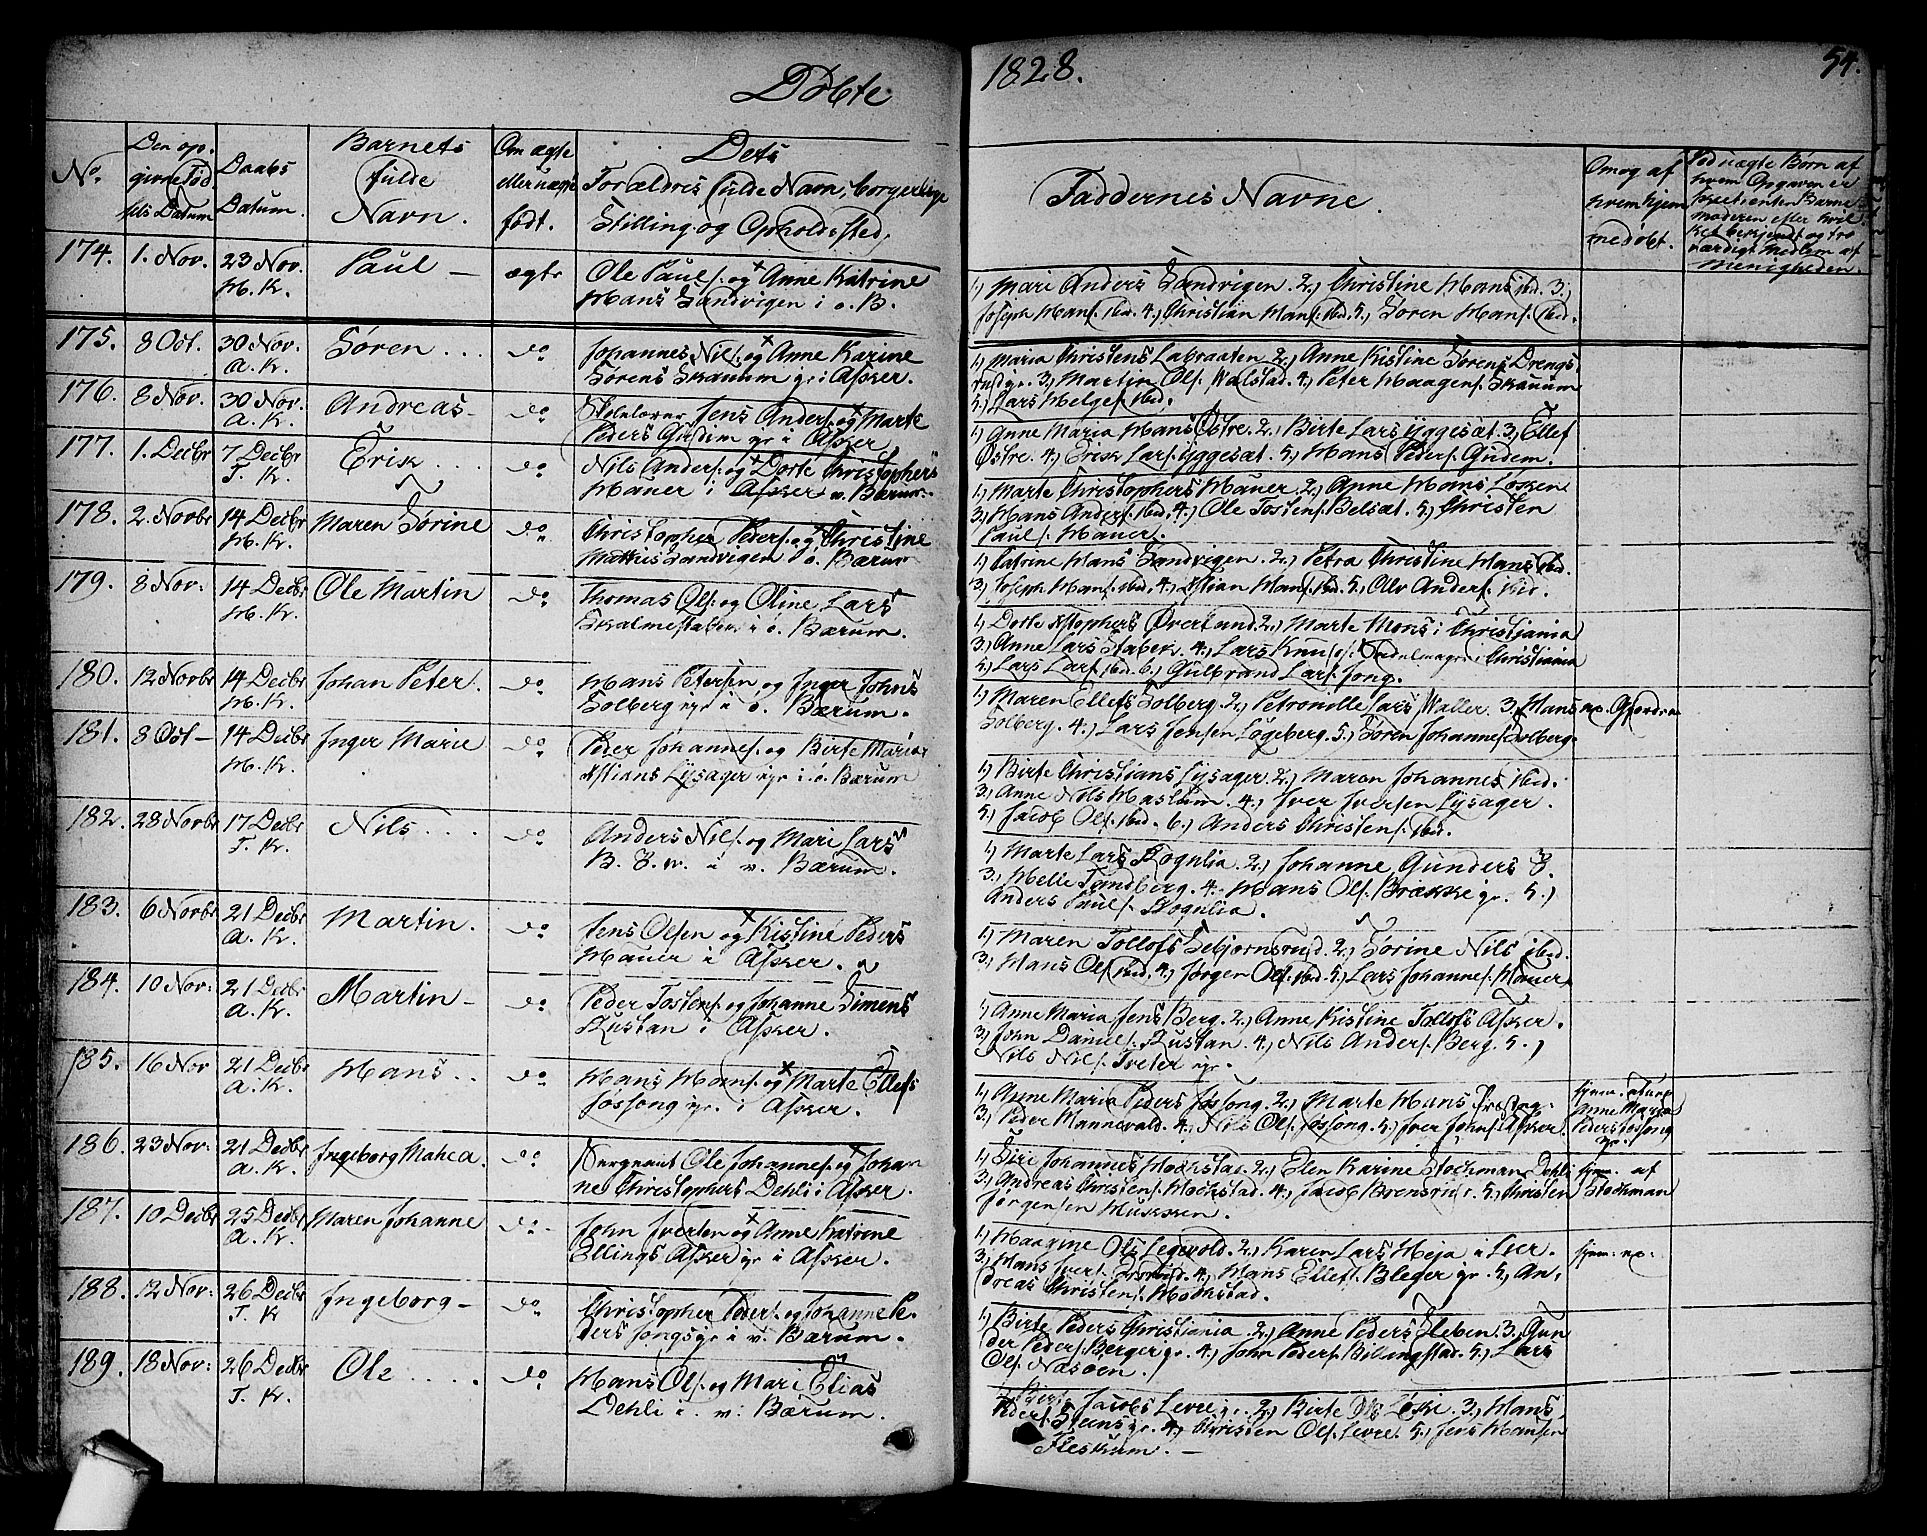 Döbte
1828.
54.
No.
Den op-
givne Föd
sels Datum
Daabs
Datum.
Barnets
fulde
Navn.
Om ægte
eller uægte
födt.
Dets
Forældris fulde Navn, borgerlige
Stilling og Opholdssted,
Faddernes Navne.
Om og af
hvem hjem
medöbt.
Ved uægte Børn af
hvem Opgaven er
menigheden.
174.
1. Nov.
23 Nov.
H. K.
Paul
ægte
Ole Pauls. og Anne Katrine
Hans Sandvigen i ö. B.
1, Mari Anders Sandvigen. 2, Christine Hans ibd. 3,
Joseph Hans. ibd. 4, Christian Hans. ibd. 5, Søren Hans. ibd.
175.
8 Oct.
30 Nov.
A. K.
Søren
do
Johannes Nils. og Anne Karine
Sørens Skauum gr. i Asker.
1, Maria Christens Labraaten 2, Anne Kistine Sørens Drengs
gr. 3, Martin Ols. Walstad. 4, Peter Haagens. Skauum
5, Lars Helges. ibd.
176.
8 Nov.
30 Nov.
A. K.
Andreas
do
Skolelærer Jens Anders. og Marte
Peders Gudim gr i Asker
1, Anne Maria Hans Østre. 2, Birte Lars Yggesæt. 3, Ellef
Østre. 4, Erik Lars. Yggesæt. 5, Hans Peders. Gudem.
177.
1. Decbr
7 Decbr
T. K.
Erik
do
Nils Anders. og Dorte Christophers
Hauer i Asker v. Bærum.
1, Marte Christophers Hauer. 2, Anne Hans Løkken
3, Hans Anders. ibd. 4, Ole Tostens. Belsæt. 5, Christen
Pauls. Hauer.
178.
2. Novbr
14 Decbr
H. K.
Maren Sørine
do
Christopher Peders. og Christine
Mathis Sandvigen i ö. Bærum
1, Catrine Hans Sandvigen. 2, Petra Christine Hans ibd.
3, Joseph Hans. ibd. 4, Xstian Hans. ibd. 5, Olv Anders. ibd.
179.
8 Nov:
14 Decbr
H. K.
Ole Martin
do
Thomas Ols. og Oline Lars
Skalmestaben i ö. Bærum.
1, Dorte Xstophers Øverland. 2, Marte Mons i Christiania
3, Anne Lars Stabek. 4, Lars Knuds. i Christiania
5, Lars Lars. ibd. 6, Gulbrand Lars. Jong.
180.
12 Novbr
14 Decbr
H. K.
Johan Peter.
do
Hans Petersen og Inger Johns
Solberg gr i ö. Bærum.
1, Maren Ellefs Solberg. 2, Petronille Lars Waller. 3, Hans
Solberg. 4, Lars Jensen Løgeberg. 5, Søren Johannes. Solberg.
181.
8 Oct
14 Decbr
H. K.
Inger Marie
do
Peder Johannes. og Birte Maria
Xstians Lysager gr i ö. Bærum
1, Birte Christians Lysager. 2, Maren Johannes ibd.
3, Anne Nils Haslum. 4, Iver Iversen Lysager.
5, Jacob Ols. ibd. 6, Anders Christens. ibd.
182.
28 Novbr
17 Decbr
T. K.
Nils
do
Anders Nils. og Mari Lars
B. 3. v. i v. Bærum.
1, Marte Lars Skogulia. 2, Johanne Gunders 3.
3, Helle Tandberg. 4. Hans Ols. Brække gr. 5.,
Anders Pauls. Skogulia.
183.
6 Novbr
21 Decbr
A. K.
Martin.
do
Jens Olsen og Kistine Peders
Hauer i Asker.
1, Maren Tollofs Sebjørnsrud. 2, Sørine Nils ibd.
3, Hans Ols. ibd. 4, Jørgen Ols. ibd. 5, Lars Johannes. Hauer
184.
10 Nov:
21 Decbr
A. K.
Martin
do
Peder Tostens. og Johanne Simens
Rustan i Asker.
1, Anne Maria Jens Berg. 2, Anne Kistine Tollofs Asker.
3, John Daniels. Rustan. 4, Nils Anders. Berg. 5.,
Nils Nils. Tveter gr.
185.
16 Nov
21 Decbr
A. K.
Hans
do
Hans Hans. og Marte Ellefs
Jossong gr. i Asker.
1, Anne Maria Peders Jossong. 2, Marte Hans
3, Peder Mannevald. 4, Nils Ols. Jossong. 5, Iver Johns. Asker.
Anne Maria
Peders Jossong
gr.
186.
23 Nov:
21 Decbr
A. K.
Ingeborg Mahea.
do
Sergeant Ole Johannes. og Johan
ne Christophers Dehli i Asker.
1, Siri Johannes Hochstad. 2, Elen Karine Stockman Dehli
3, Andreas Christens. Hochstad. 4, Jacob Brensrud. 5, Christen
Jørgensen Hukken.
hjem. af
Stockman
187.
10 Decbr
25 Decbr
A. K.
Maren Johanne
do
John Iversen og Anne Katrine
Ellings Asker gr i Asker.
1, Haagine Ols Legevold. 2, Karen Lars Heja i Lier.
3, Hans Ivers. 4, Hans Ellefs. Bleger gr. 5, An,
dreas Christens. Hochstad.
188.
12 Nov:
26 Decbr
T. K
Ingeborg
do
Christopher Peders. og Johanne Pe.
ders Jongs gr i v. Bærum.
1, Birte Peders Christiania. 2, Anne Peders Sleben. 3, Gun
der Peders. Berger gr. 4, John Peders. Billingstad. 5, Lars
Ols. Nasøen.
189.
18 Nov:
26 Decbr
T. K.
Ole
do
Hans Ols. og Mari Elias
Dehli i. v. Bærum.
Jacobs Levre gr. 2, Birte Ols Løkke. 3, Hans
Peders. Steinsgr. 4, Christen Ols. Levre. 5, Jens Hansen
Fleskum.